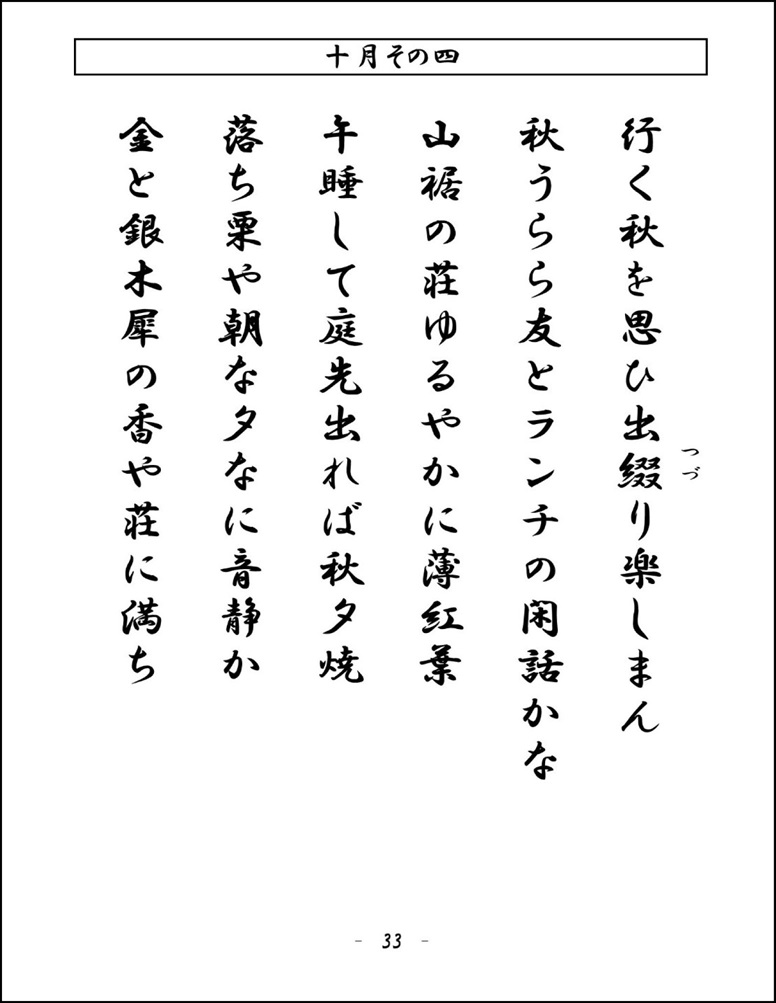 十月その四
行く秋を思ひ出綴り楽しまん
つづ
秋うらら友とランチの閑話かな
山裾の荘ゆるやかに薄紅葉
午睡して庭先出れば秋夕焼
落ち栗や朝な夕なに音静か
金と銀木犀の香や荘に満ち
- 33 -